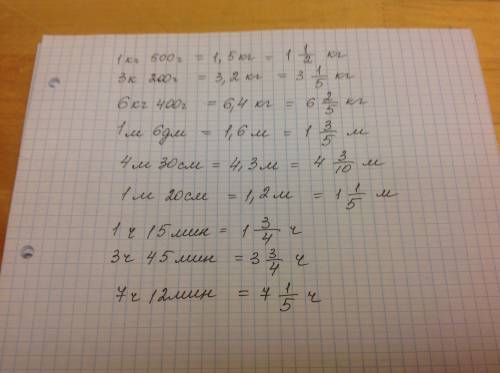 1кг 500г = 1,5 кг = 1 1/2 кг
3к 200г = 3,2 кг = 3 1/5 кг
6 кг 400г = 6,4 кг = 6 2/5 кг
1м 6дм = 1,6 м = 1 3/5 м
4м 30см = 4,3м = 4 3/10 м
1м 20см = 1,2м = 1 1/5 м
1ч 15мин = 1 3/4 ч
3ч 45мин = 3 3/4 ч
7ч 12мин = 7 1/5 ч